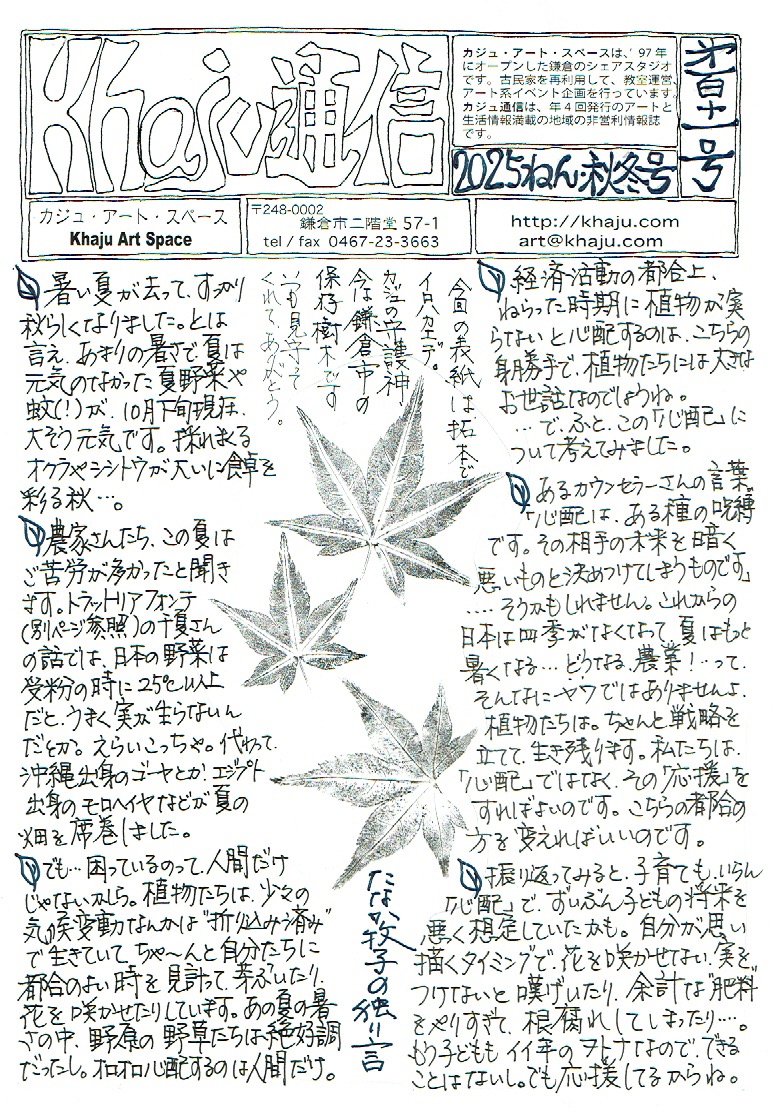 Khaju通信
カジュ・アート・スペースは、'97年
にオープンした鎌倉のシェアスタジオ
です。古民家を再利用して、教室運営、
アート系イベント企画を行っています。
カジュ通信は、年4回発行のアートと
生活情報満載の地域の非営利情報誌
です。
2025ねん・秋冬号
第百十一号
カジュ・アート・スペース
Khaju Art Space
〒248-0002
鎌倉市二階堂 57-1
tel / fax 0467-23-3663
http://khaju.com
art@khaju.com
暑い夏が去って、すっかり
秋らしくなりました。とは
言え、あまりの暑さで夏は
元気のなかった夏野菜や
蚊(!)が、10月下旬現在、
大そう元気です。採れまくる
オクラやシシトウが大いに食卓を
彩る秋…。
農家さんたち、この夏は
ご苦労が多かったと聞き
ます。トラットリアフォンテ
(別ページ参照)の千夏さん
の話では、日本の野菜は
受粉の時に25℃以上
だと、うまく実が生らないん
だとか。えらいこっちゃ。代わって、
沖縄出身のゴーヤとか、エジプト
出身のモロヘイヤなどが夏の
畑を席巻しました。
でも…困っているのって、人間だけ
じゃないかしら。植物たちは、少々の
気候変動なんかは“折り込み済み”
で生きていて、ちゃ〜んと自分たちに
都合のよい時を見計って、芽ぶいたり、
花を咲かせたりしています。あの夏の暑
さの中、野原の野草たちは絶好調
だったし。オロオロ心配するのは人間だけ。
今回の表紙は拓本で
イロハカエデ。
カジュの守護神
今は鎌倉市の
保存樹木です
いつも見守って
くれてありがとう。
たなか牧子の独り言
経済活動の都合上、
ねらった時期に植物が実
らないと心配するのは、こちらの
身勝手で、植物たちには大きな
お世話なのでしょうね。
…で、ふと、この「心配」に
ついて考えてみました。
あるカウンセラーさんの言葉。
「心配は、ある種の呪縛
です。その相手の未来を暗く
悪いものと決めつけてしまうものです」
‥‥そうかもしれません。これからの
日本は四季がなくなって、夏はもっと
暑くなる…どうなる、農業!…って、
そんなにヤワではありませんよ、
植物たちは。ちゃんと戦略を
立てて、生き残ります。私たちは、
「心配」ではなく、その「応援」を
すればよいのです。こちらの都合の
方を変えればいいのです。
振り返ってみると、子育ても、いらん
「心配」で、ずいぶん子どもの将来を
悪く想定していたかも。自分が思い
描くタイミングで、花を咲かせない、実を
つけないと嘆げいたり、余計な“肥料”
をやりすぎて、根腐れしてしまったり‥‥。
もう子どももイイ年のヲトナなので、できる
ことはないし。でも応援してるからね。